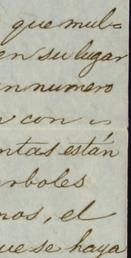 que mul=
en su lugar
un numero
con
ntas están
rboles
nos, el
que se haya